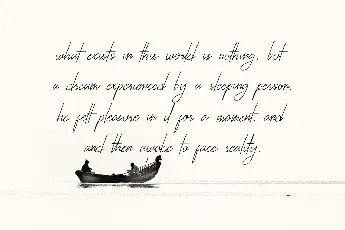 what exists in this world is nothing, but
a dream experienced by a sleeping person.
he felt pleasure in it for a moment, and
and then awoke to face reality.